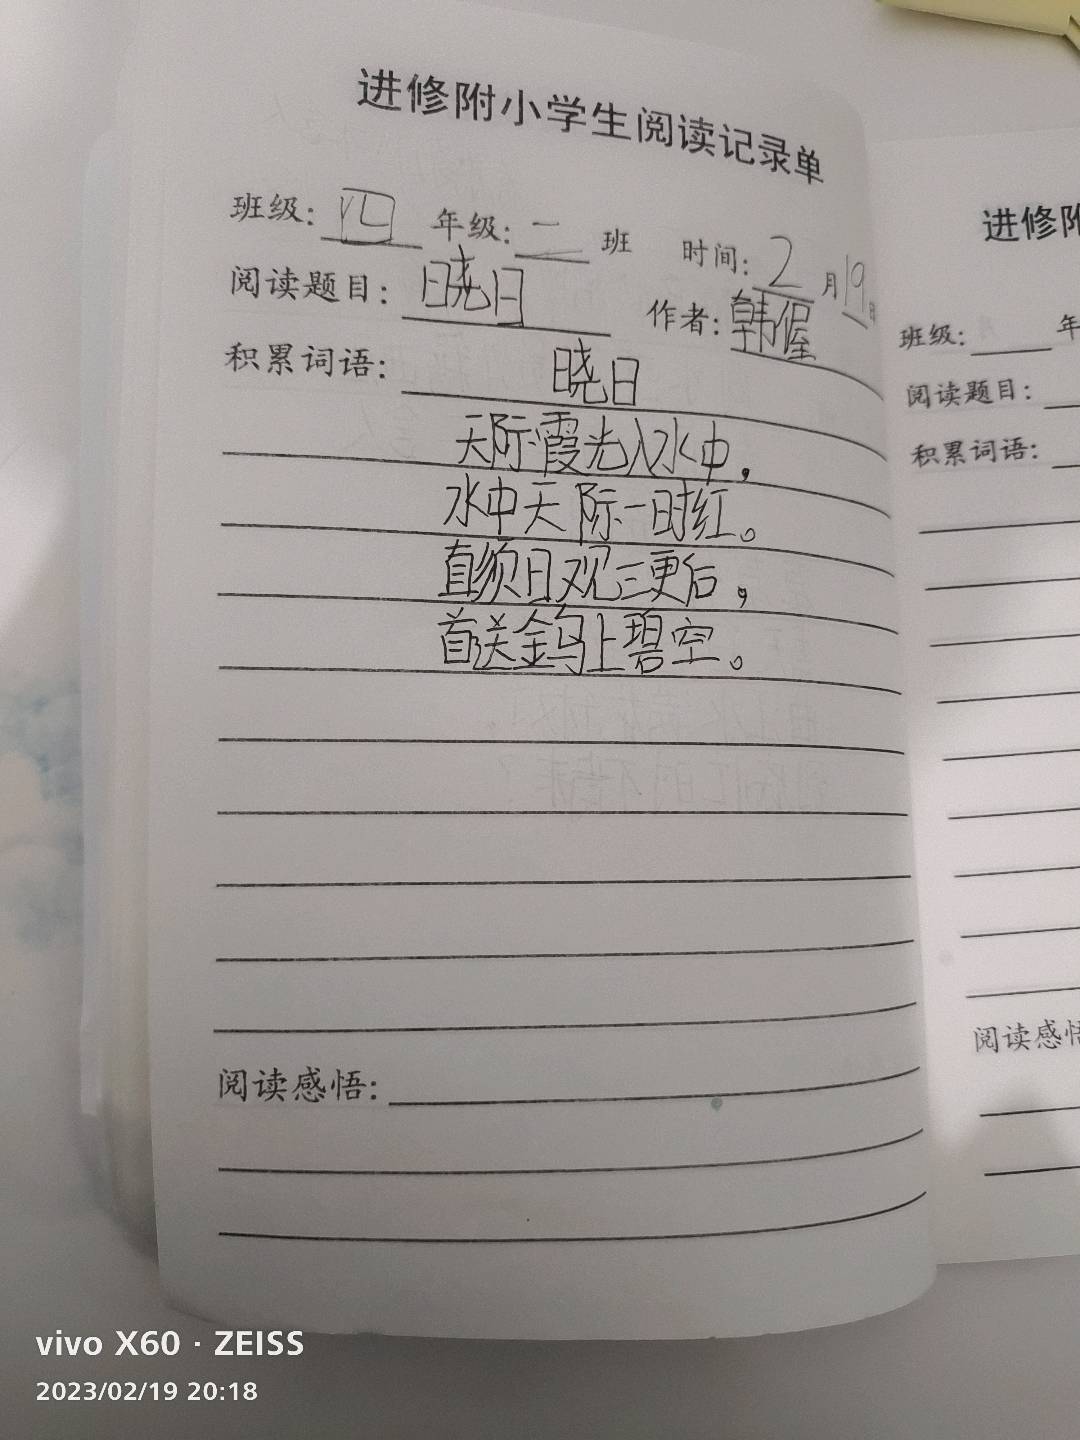 进修附小学生阅读记录单
班级：四 年级：二 班 时间：2 月 19 日
阅读题目：晓日 作者：韩偓
积累词语：晓日
天际霞光入水中，
水中天际一时红。
直须日观三更后，
首送金乌上碧空。
阅读感悟：
进修附
班级： 年
阅读题目：
积累词语：
阅读感悟
vivo X60 · ZEISS
2023/02/19 20:18